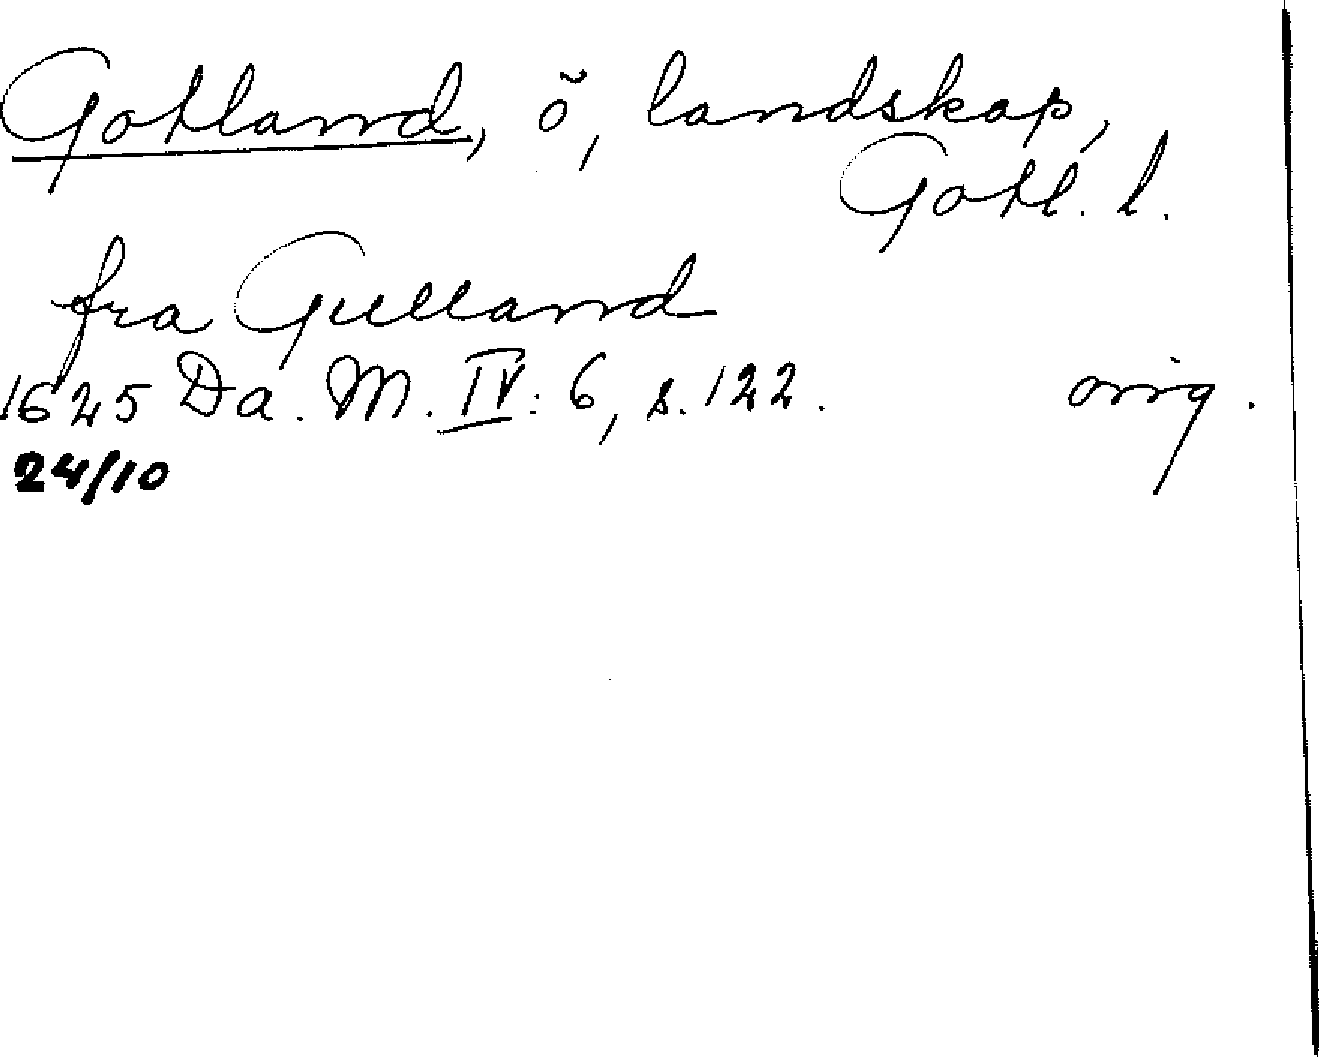 Gotland, ö, landskap,
Gotl. l.
fra Gulland
1625 Da. M. IV: 6, s. 122. orig.
24/10